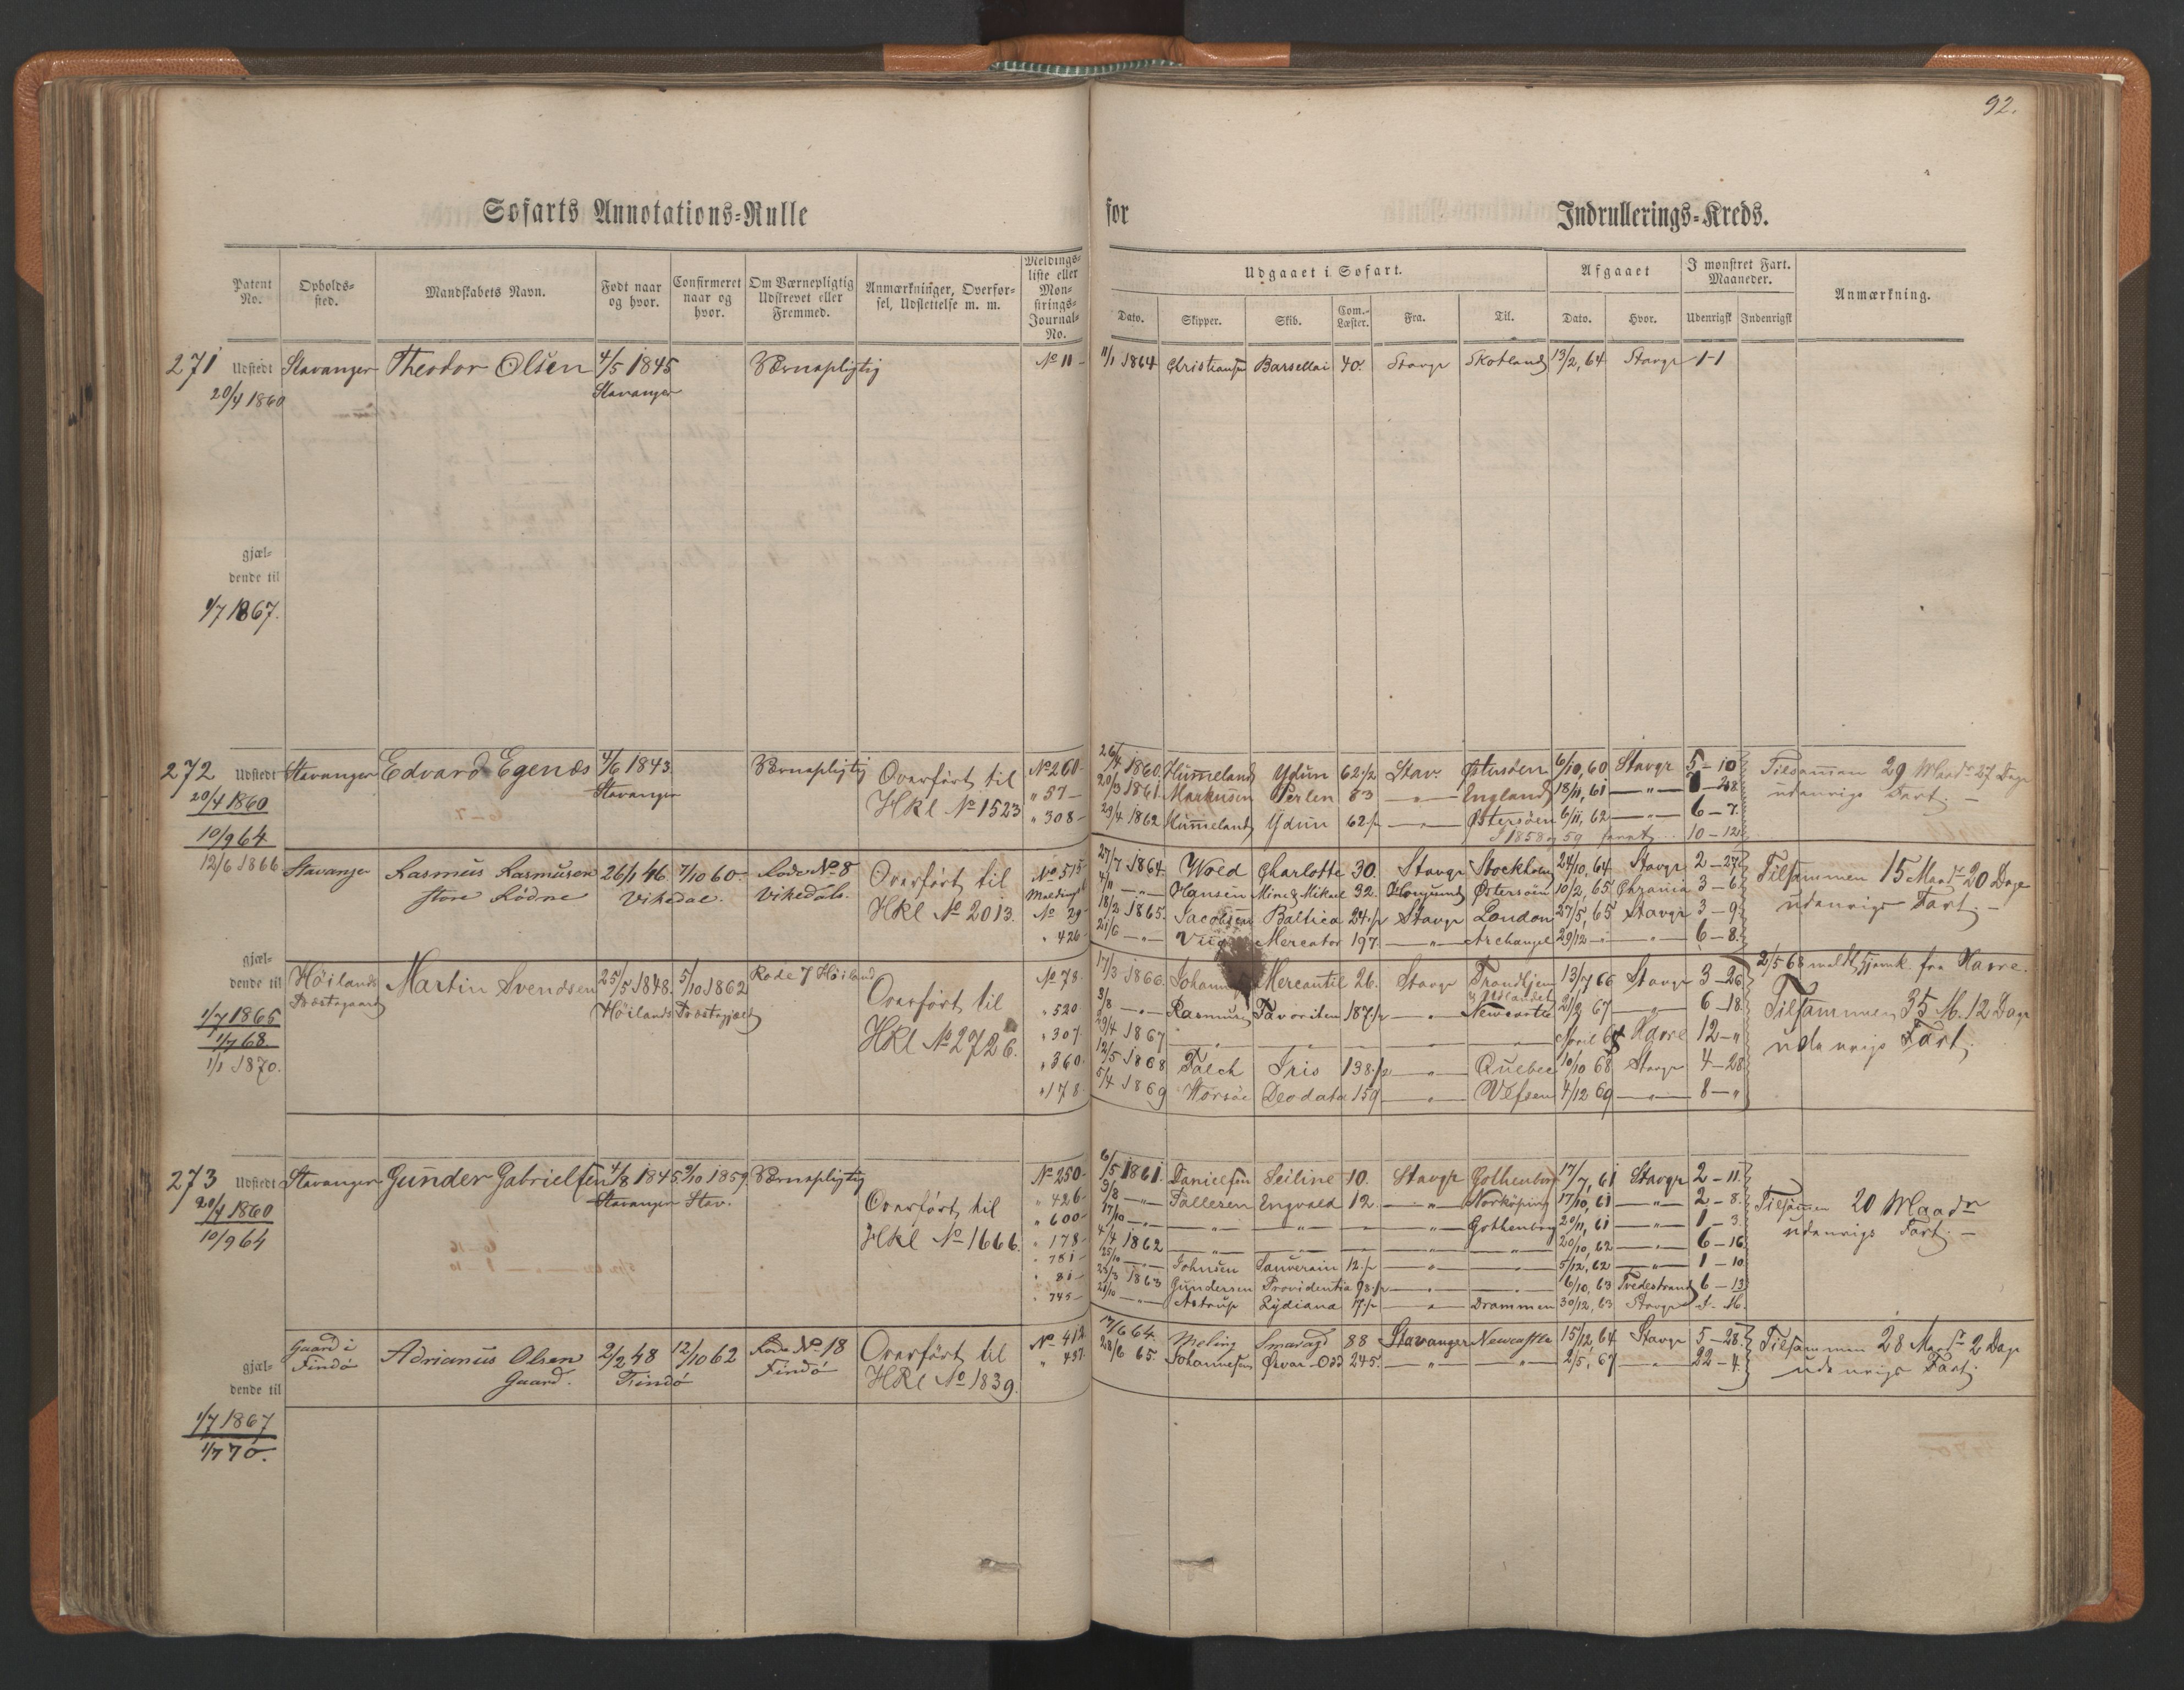 92.
Søfarts Annotations-Rulle for Indrullerings-Kreds.
Patent No.
Opholds-sted.
Mandskabets Navn.
Født naar og hvor.
Confirmeret naar og hvor.
Om Værnepligtig Udskrevet eller Fremmed.
Anmærkninger, Overfør-sel, Udslettelse m. m.
Meldings-liste eller Mon-strings-Journal-No.
Udgaaet i Søfart.
Dato. Skipper. Skib. Com.-Læster. Fra. Til.
Afgaaet
Dato. Hvor.
I mønstret Fart. Maaneder.
Udenrigsk Indenrigsk
Anmærkning.
271 Udstedt Stavanger Theodor Olsen 4/5 1845 Værnepligtig No 11 - 11/1 1864 Christiansen Barsellai 40. Stavgr Skotland 13/2, 64 Stavgr 1-1
20/4 1860 Stavanger
gjæl-
dende til
1/7 1867.
272 Udstedt Stavanger Edvard Egenæs 4/6 1843. Værnepligtig Overført til No 260- 26/4 1860. Himmeland Ydun 62 1/2 Stav. Østersøen 6/10, 60 Stavgr 5-10 Tilsammen 29 Maadr 27 Dage
20/4 1860 Stavanger HKl No 1523 " 57- 20/3 1861. Markusen Perlen 53 —"— England 18/11, 61 —"— -28 udenrigs Fart. -
10/9 64 " 308- 29/4 1862 Himmeland Ydun 62 1/2 —"— Østersøen 6/11, 62 —"— 6-7.
I 1858 og 59 10-12
12/6 1866 Stavanger Rasmus Rasmusen 26/1 46. 7/10 60. Rode No 8 Overført til No 515 27/7 1864. Wold Charlotte 30. Stavgr Stockholm 24/10, 64 Stavgr 2-27 Tilsammen 15 Maadr 20 Dage
store Rødne Vikedal. Vikedals. HKl No 2013. 4/11 —"— Hansen Mine & Mikael 32. Østersøen 10/2, 65 3-6 udenrigs Fart. -
No 29- 18/2 1865. Jacobsen Baltica 24 1/2 Stavgr London 27/5, 65 Stavgr 3-9
" 426- 21/6 —"— Mercator 197. —"— Archangel 29/12 —"— —"— 6-8.
gjæl-
dende til Høilands Martin Svendsen 25/5 1848. 5/10 1862 Rode 7 Høiland Overført til No 78. 17/3 1866. Mercantil 26. Stavgr Trondhjem 13/7 66 Stavgr 3-26 2/5 68 meldt hjemk. fra Havre.
Præstegaard Høilands Præstegjæld & Udlandet
1/7 1865 HKl No 2726. " 520. 3/8 —"— Rasmusen Favoriten 187 1/2 —"— Newcastle 21/2 67 —"— 6-18. Tilsammen 35 M. 12 Dage
1/7 68. " 307. 29/4 1867 —"— —"— —"— —"— —"— April 68 Havre 12-" udenrigs Fart.
1/1 1870. " 360. 12/5 1868 Falch Iris 138 1/2 —"— Quebec 10/10 68 Stavgr 4-28
" 178. 5/4 1869 Deodata 159 —"— Vefsen 4/12 69 —"— 8-"
273 Udstedt Stavanger Gunder Gabrielsen 4/8 1845. 9/10 1859. Værnepligtig No 250- 6/5 1861. Danielsen Seiline 10. Stavgr Gothenborg 17/7, 61 Stavgr 2-11.
20/4 1860 Stavanger Stav. Overført til " 426- 3/8 —"— Tallesen Engvald 12. —"— Norköping 17/10, 61 —"— 2-8. Tilsammen 20 Maadr
10/9 64 HKl No 1666. " 600- 17/10 —"— —"— —"— —"— Gothenborg 20/11, 61 —"— 1-3. udenrigs Fart. -
" 178- 4/4 1862 —"— —"— —"— —"— —"— 20/10, 62 —"— 6-16
" 781- 25/10 —"— Johnsen Sauverain 12 1/2 —"— —"— 5/12, 62 —"— 1-10
" 81- 23/3 1863 Gundersen Providentia 98 1/2 —"— —"— 6/10, 63 Tvedestrand 6-13
" 745- —"— Astrup Lydiana 17 1/2 —"— Drammen 30/12, 63 Stavgr
Gaard i Adrianus Olsen 2/2 48 12/10 62 Rode No 18 Overført til No 412. 17/6 64. Meling Smaragd 88 Stavanger Newcastle 15/12, 64 Stavgr 5-28 Tilsammen 28 Maadr 2 Dage
Findø Gaard. Findø Findø HKl No 1839. " 437. 28/6 65. Johannesen Ørvar-Odd 245. —"— —"— 2/5, 67 —"— 22-4. udenrigs Fart.
gjæl-
dende til
1/7 1867
1/7 70.